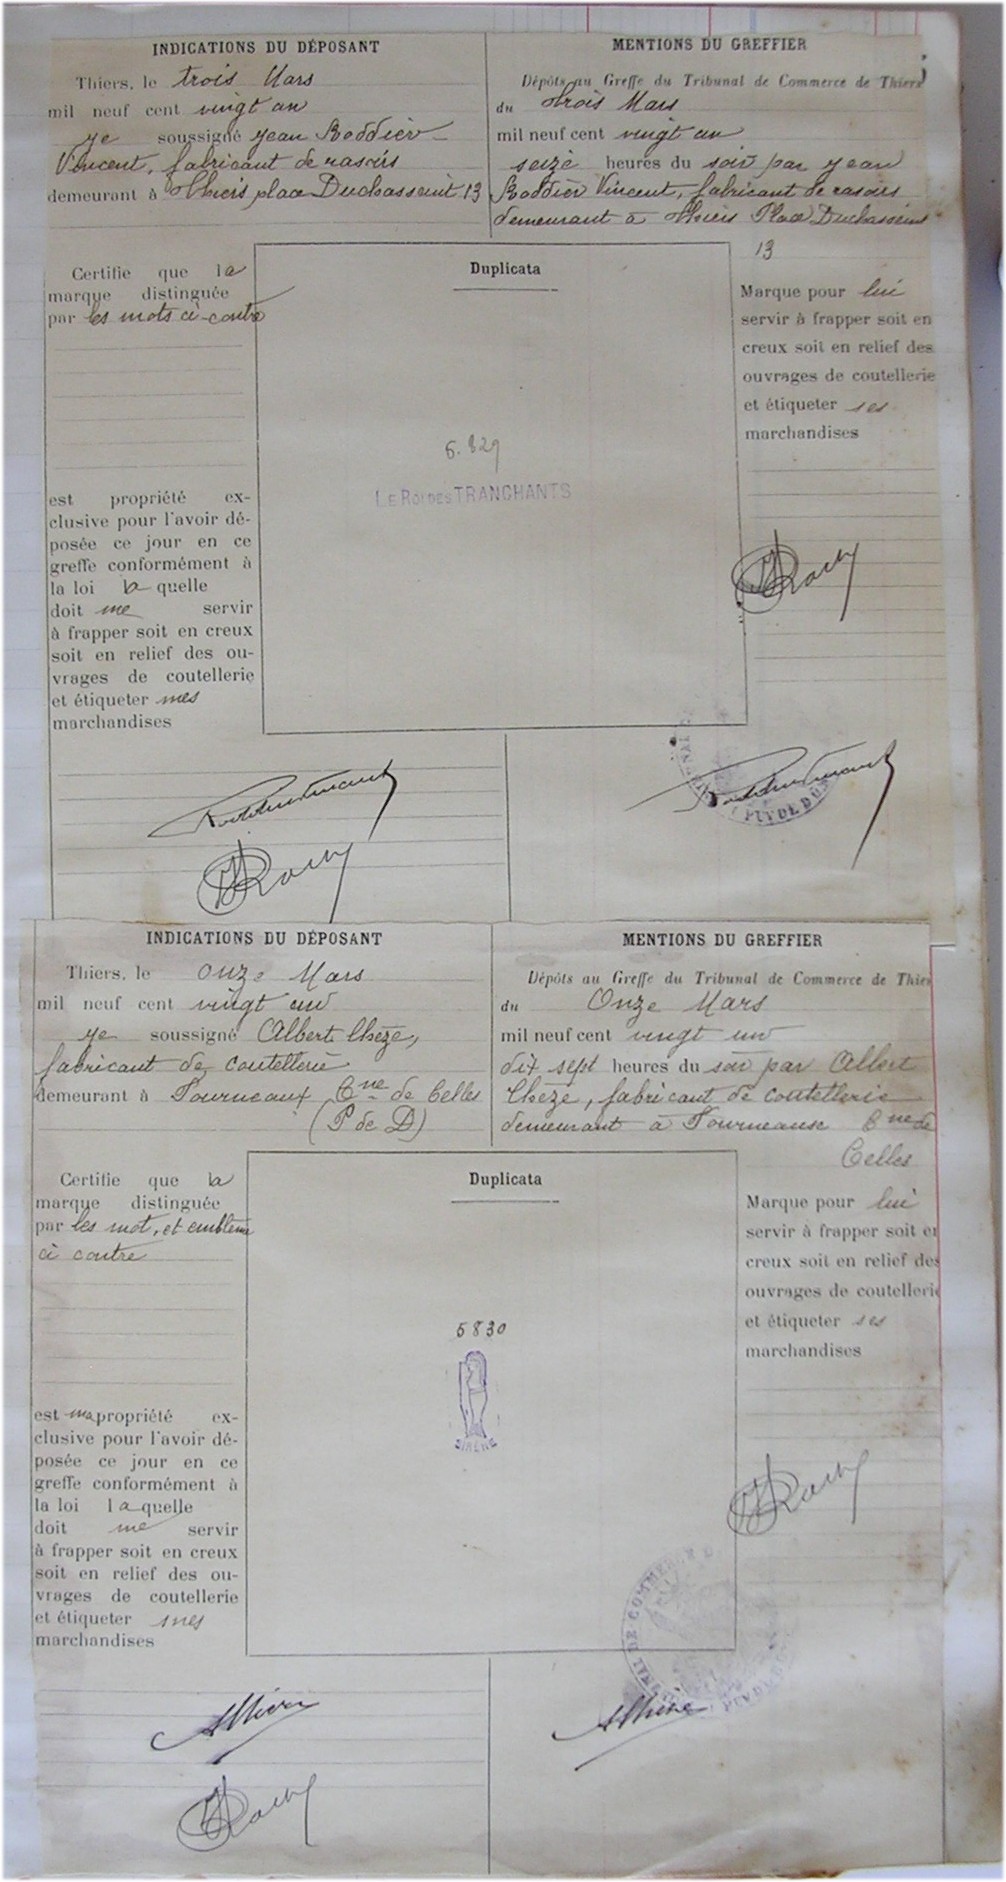 INDICATIONS DU DÉPOSANT
Thiers, le trois Mars
mil neuf cent vingt un
je soussigné Jean Boddier
Vincent, fabricant de rasoirs
demeurant à Thiers place Duchasseint 13
MENTIONS DU GREFFIER
Dépôts au Greffe du Tribunal de Commerce de Thiers
du trois Mars
mil neuf cent vingt un
seize heures du soir par Jean
Boddier Vincent, fabricant de rasoirs
demeurant à Thiers Place Duchasseint
13
Certifie que la
marque distinguée
par les mots ci-contre
est propriété ex-
clusive pour l'avoir dé-
posée ce jour en ce
greffe conformément à
la loi la quelle
doit me servir
à frapper soit en creux
soit en relief des ou-
vrages de coutellerie
et étiqueter mes
marchandises
Duplicata
5.829
LE ROI DES TRANCHANTS
Marque pour lui
servir à frapper soit en
creux soit en relief des
ouvrages de coutellerie
et étiqueter ses
marchandises
PUY DE DÔME
INDICATIONS DU DÉPOSANT
Thiers, le onze Mars
mil neuf cent vingt un
je soussigné Albert Chèze,
fabricant de coutellerie
demeurant à Tourneaux Cne de Celles
(P de D)
MENTIONS DU GREFFIER
Dépôts au Greffe du Tribunal de Commerce de Thier
du Onze Mars
mil neuf cent vingt un
dix sept heures du soir par Albert
Chèze, fabricant de coutellerie
demeurant à Tourneaux Cne de
Celles
Certifie que la
marque distinguée
par les mot, et emblème
ci contre
est ma propriété ex-
clusive pour l'avoir dé-
posée ce jour en ce
greffe conformément à
la loi laquelle
doit me servir
à frapper soit en creux
soit en relief des ou-
vrages de coutellerie
et étiqueter mes
marchandises
Duplicata
5830
SIRÈNE
Marque pour lui
servir à frapper soit en
creux soit en relief des
ouvrages de coutellerie
et étiqueter ses
marchandises
DE COMMERCE D
AChèze
AChèze